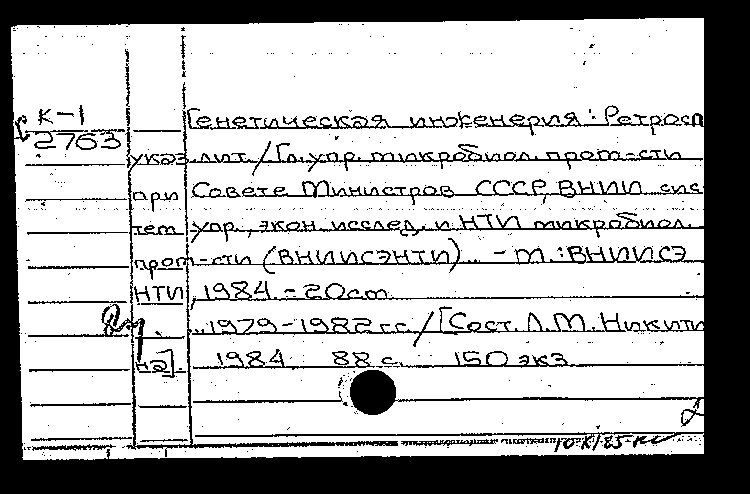 К-1
2763
Генетическая инженерия: Ретросп
указ. лит. / Гл. упр. микробиол. пром-сти
при Совете Министров СССР, ВНИИ сис-
тем упр., экон. исслед. и НТИ микробиол.
пром-сти (ВНИИСЭНТИ). - М.: ВНИИСЭ
НТИ, 1984. - 20 cm.
1979-1982 гг. / [Сост. Л.М. Никити
на]. 1984. 88 с. 150 экз.
2